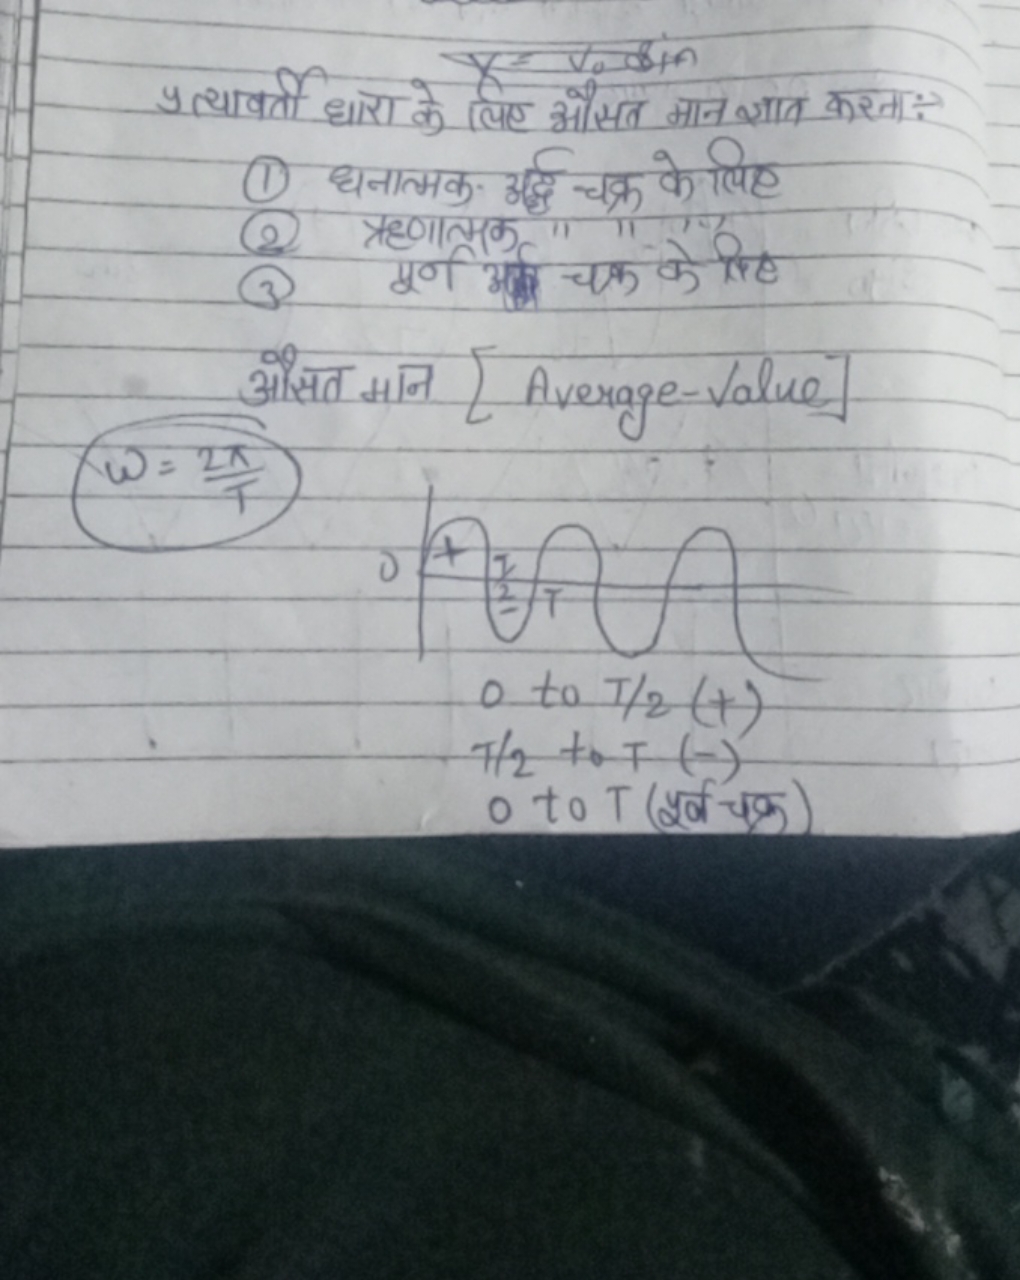 V = V₀ sin
प्रत्यावर्ती धारा के लिए औसत मान ज्ञात करना :-
① धनात्मक अर्द्ध चक्र के लिए
② ऋणात्मक " " " "
③ पूर्ण चक्र के लिए
औसत मान [ Average-Value ]
ω = 2π/T
0 + T/2 - T
0 to T/2 (+)
T/2 to T (-)
0 to T (पूर्ण चक्र)